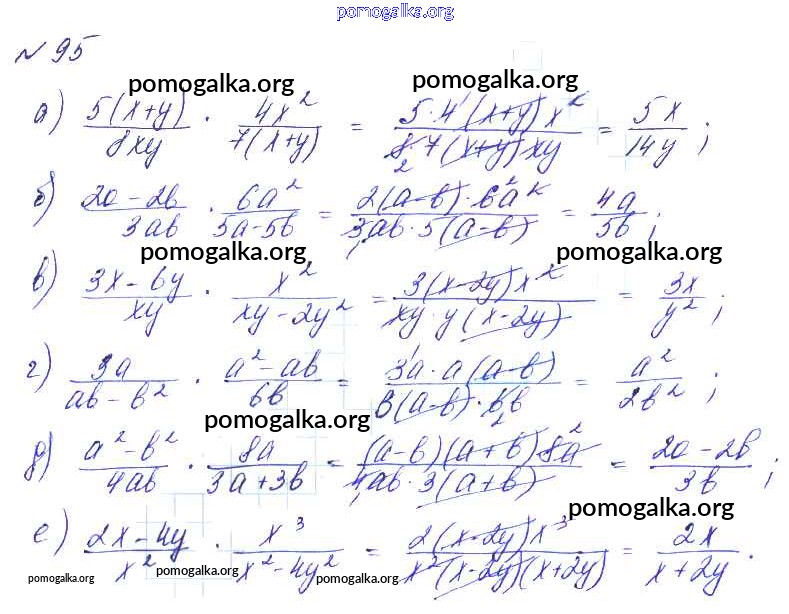 pomogalka.org
№ 95
pomogalka.org pomogalka.org
а) 5(x+y)/8xy · 4x²/7(x+y) = 5·4¹(x+y)x²/8₂·7(x+y)xy = 5x/14y ;
б) 2a-2b/3ab · 6a²/5a-5b = 2(a-b)·6²a²/3₁ab·5(a-b) = 4a/5b ;
pomogalka.org pomogalka.org
в) 3x-6y/xy · x²/xy-2y² = 3(x-2y)x²/xy·y(x-2y) = 3x/y² ;
г) 3a/ab-b² · a²-ab/6b = 3¹a·a(a-b)/b(a-b)·6₂b = a²/2b² ;
pomogalka.org
д) a²-b²/4ab · 8a/3a+3b = (a-b)(a+b)8²a/4₁ab·3(a+b) = 2a-2b/3b ;
pomogalka.org
е) 2x-4y/x² · x³/x²-4y² = 2(x-2y)x³/x²(x-2y)(x+2y) = 2x/x+2y .
pomogalka.org pomogalka.org pomogalka.org